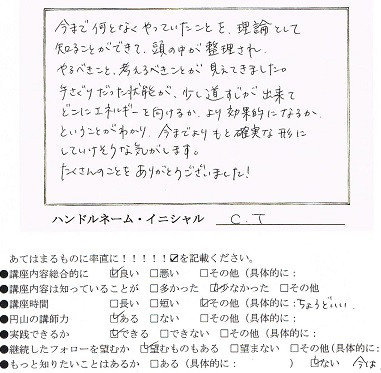 今まで何となくやっていたことを、理論として
知ることができて、頭の中が整理され、
やるべきこと、考えるべきことが見えてきました。
手さぐりだった状態が、少し道すじが出来て
どこにエネルギーを向けるか、より効果的になるか、
ということがわかり、今までよりもと確実な形に
していけそうな気がします。
たくさんのことを ありがとうございました!
ハンドルネーム・イニシャル C.T
あてはまるものに率直に!!!!!☑を記載ください。
●講座内容総合的に ☑良い □悪い □その他(具体的に:
●講座内容は知っていることが □多かった ☑少なかった □その他
●講座時間 □長い □短い ☑その他(具体的に:ちょうどいい.
●円山の講師力 ☑ある □ない □その他(具体的に:
●実践できるか ☑できる □できない □その他(具体的に:
●継続したフォローを望むか ☑望むものもある □望まない □その他(具体的に:
●もっと知りたいことはあるか □ある(具体的に: ) ☑ない 今は